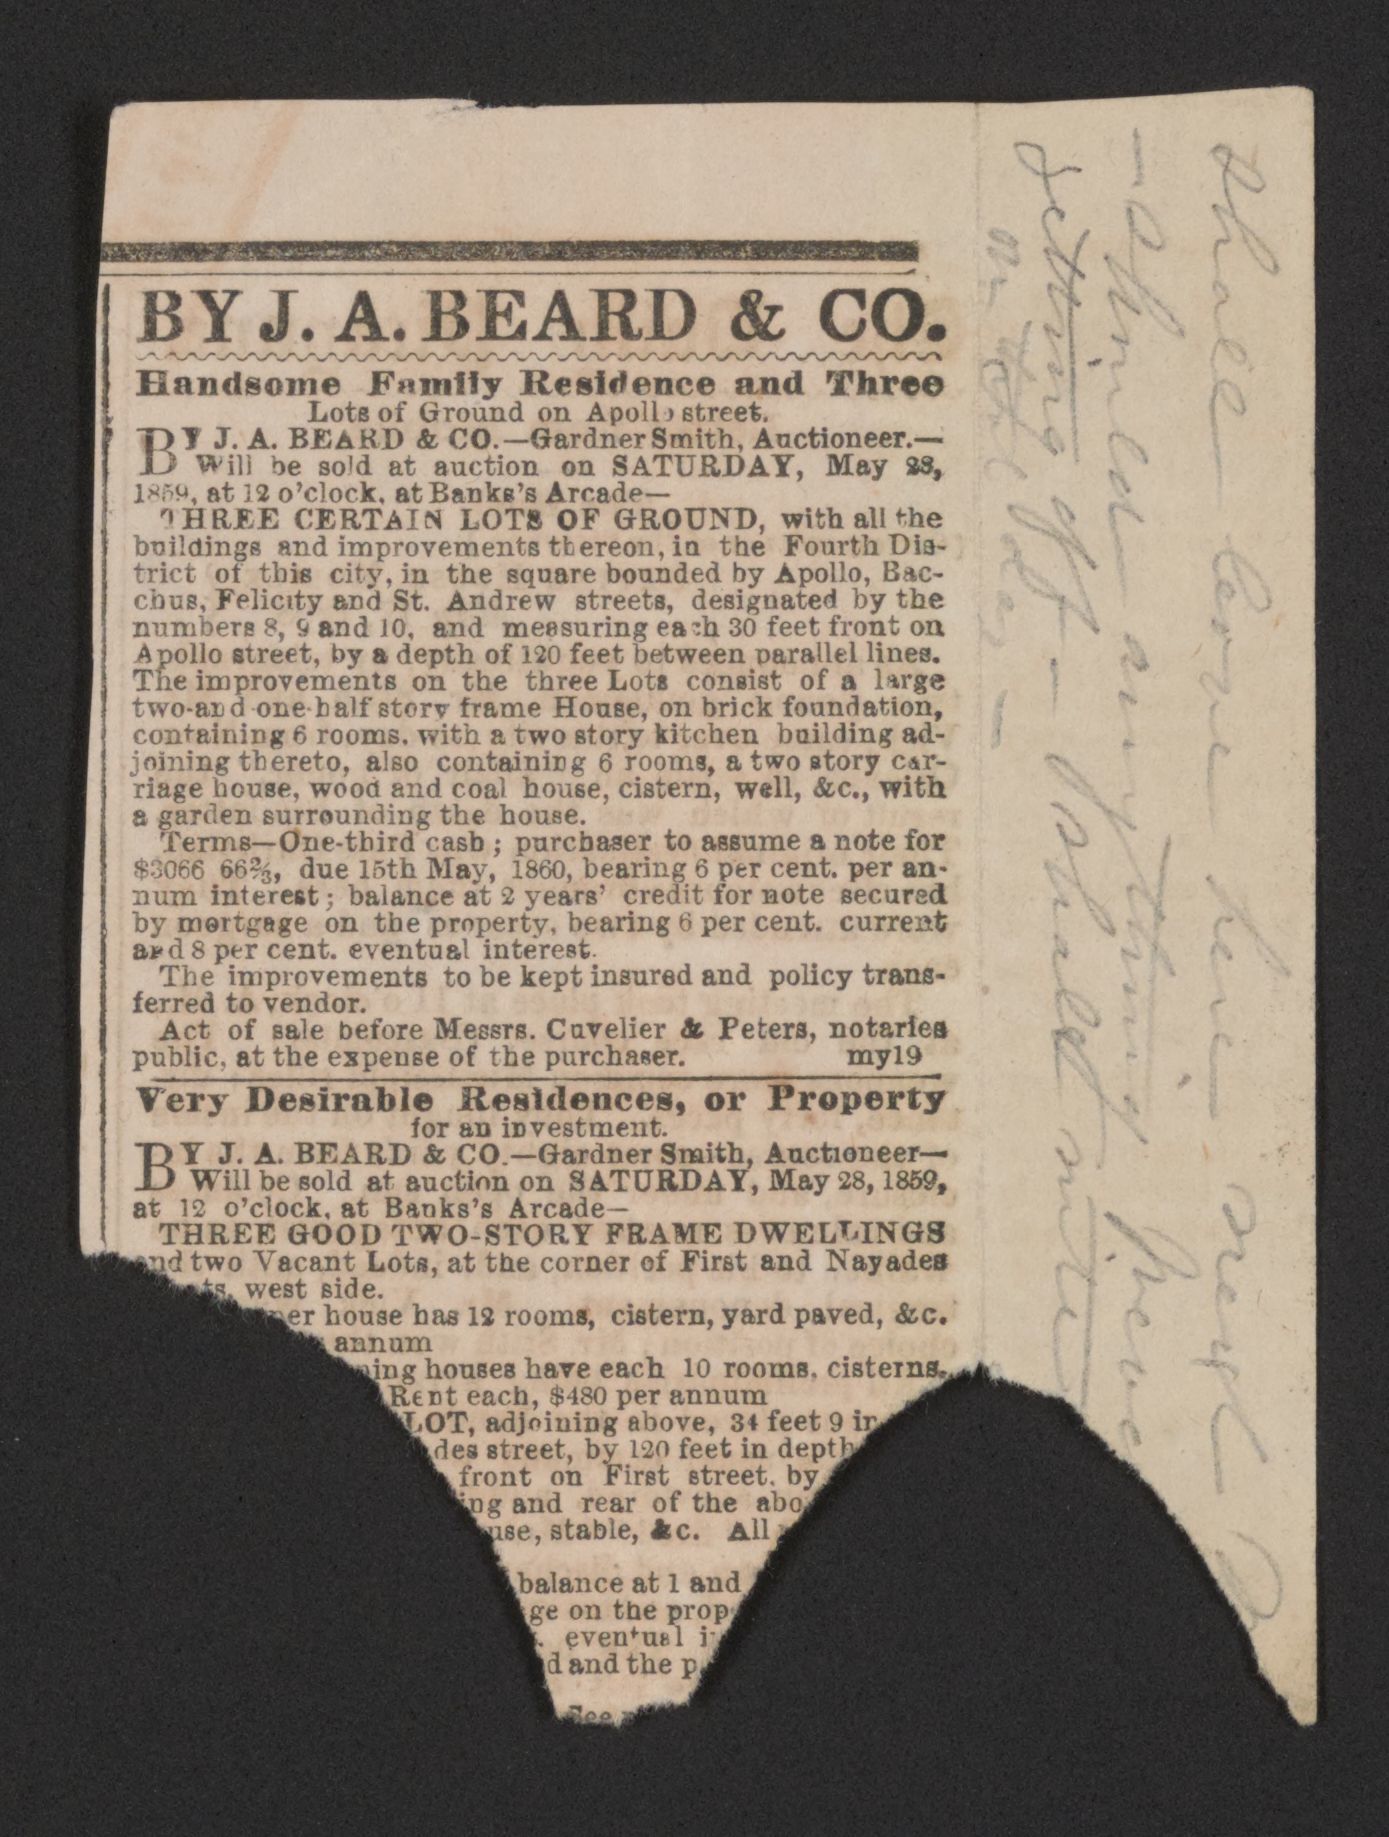 BY J. A. BEARD & CO.
Handsome Family Residence and Three
Lots of Ground on Apollo street.
BY J. A. BEARD & CO.—Gardner Smith, Auctioneer.—
Will be sold at auction on SATURDAY, May 28,
1859, at 12 o'clock, at Banks's Arcade—
THREE CERTAIN LOTS OF GROUND, with all the
buildings and improvements thereon, in the Fourth Dis-
trict of this city, in the square bounded by Apollo, Bac-
chus, Felicity and St. Andrew streets, designated by the
numbers 8, 9 and 10, and measuring each 30 feet front on
Apollo street, by a depth of 120 feet between parallel lines.
The improvements on the three Lots consist of a large
two-and-one-half story frame House, on brick foundation,
containing 6 rooms, with a two story kitchen building ad-
joining thereto, also containing 6 rooms, a two story car-
riage house, wood and coal house, cistern, well, &c., with
a garden surrounding the house.
Terms—One-third cash; purchaser to assume a note for
$3066 66⅔, due 15th May, 1860, bearing 6 per cent. per an-
num interest; balance at 2 years' credit for note secured
by mortgage on the property, bearing 6 per cent. current
and 8 per cent. eventual interest.
The improvements to be kept insured and policy trans-
ferred to vendor.
Act of sale before Messrs. Cuvelier & Peters, notaries
public, at the expense of the purchaser. my19
Very Desirable Residences, or Property
for an investment.
BY J. A. BEARD & CO.—Gardner Smith, Auctioneer—
Will be sold at auction on SATURDAY, May 28, 1859,
at 12 o'clock, at Banks's Arcade—
THREE GOOD TWO-STORY FRAME DWELLINGS
and two Vacant Lots, at the corner of First and Nayades
ts, west side.
ner house has 12 rooms, cistern, yard paved, &c.
annum
ning houses have each 10 rooms, cisterns,
Rent each, $480 per annum
LOT, adjoining above, 34 feet 9 in
des street, by 120 feet in depth
front on First street, by
ing and rear of the abo
use, stable, &c. All
balance at 1 and
ge on the prop
. eventual i
d and the p
See
shall
anything
getting off—